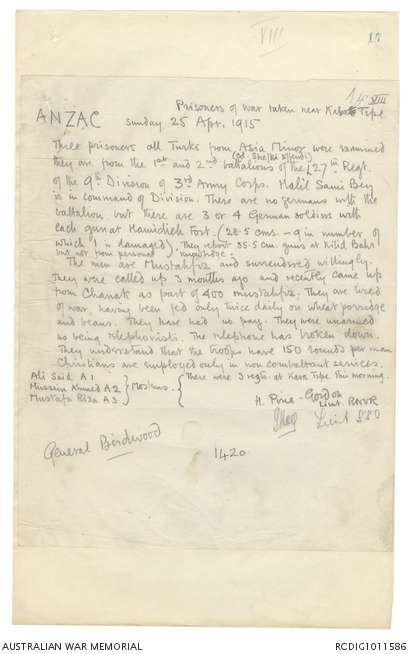 VIII
17
Prisoners of war taken near Kaba Tepe
ANZAC
Sunday 25 Apr. 1915
Three prisoners all Turks from Asia Minor were examined
they are from the 1st and 2nd battalions of the 27th Regt.
(Col. Shefki Effendi)
of the 9th Division of 3rd Army Corps. Halil Sami Bey
is in command of Division. There are no germans with the
battalion but there are 3 or 4 German soldiers with
each gun at Hamidieh Fort. (28.5 cms - 9 in number of
which 1 is damaged). They report 35.5 cm. guns at Kilid Bahr
but not from personal knowledge.
The men are Mustahfiz and surrendered willingly.
They were called up 3 months ago and recently came up
from Chanak as part of 400 mustahfiz. They are tired
of war, having been fed only twice daily on wheat porridge
and beans. They have had no pay. They were unarmed
as being telephonists. The telephone has broken down.
They understand that the troops have 150 rounds per man
Christians are employed only in non combattant services.
Ali Said A1
Hussein Ahmed A2 } Moslems.
Mustafa Riza A3
{ There were 3 regts. at Kaba Tepe this morning.
H. Pirie-Gordon
Lieut. RNVR
Lieut SSO
General Birdwood
1420
AUSTRALIAN WAR MEMORIAL
RCDIG1011586